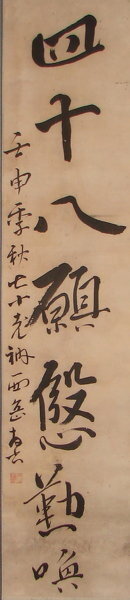 四十八願慇懃喚
壬申季秋七十老衲西